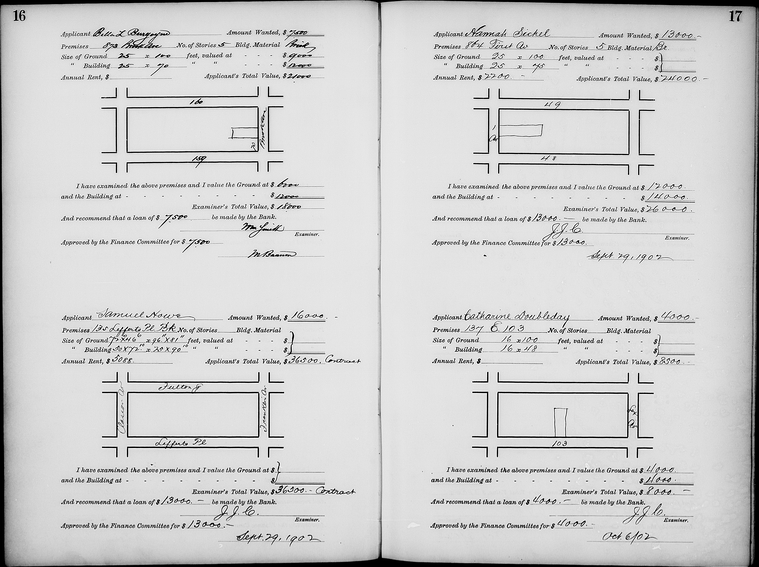 16
Applicant Bella L Burgoyne Amount Wanted, $ 7500
Premises 873 No. of Stories 5 Bldg. Material Brick
Size of Ground 25 x 100 feet, valued at - - - $ 9000
" Building 25 x 70 " " - - - $ 12000
Annual Rent, $ Applicant's Total Value, $ 21000
160
159
I have examined the above premises and I value the Ground at $ 6000
and the Building at - - - - - - - - $ 12000
Examiner's Total Value, $ 18000
And recommend that a loan of $ 7500 be made by the Bank.
Wm Smith
Examiner.
Approved by the Finance Committee for $ 7500
Applicant Samuel Howe Amount Wanted, $ 16000
Premises 135 Lefferts Pl Bk No. of Stories Bldg. Material
Size of Ground 96'x81" feet, valued at - - - $
" Building " " - - - $
Annual Rent, $ 3088 Applicant's Total Value, $ 36500. Contract
Fulton
Franklin Av
Lefferts Pl
I have examined the above premises and I value the Ground at $
and the Building at - - - - - - - - $
Examiner's Total Value, $ 36500 - Contract
And recommend that a loan of $ 13000. - be made by the Bank.
J.J.C.
Examiner.
Approved by the Finance Committee for $ 13000. -
Sept. 29, 1902
17
Applicant Hannah Sickel Amount Wanted, $ 13000. -
Premises 804 First Av No. of Stories 5 Bldg. Material Br
Size of Ground 25 x 100 feet, valued at - - - $
" Building 25 x 75 " " - - - $
Annual Rent, $ 2200 - Applicant's Total Value, $ 24000. -
49
1 Av
48
I have examined the above premises and I value the Ground at $ 12000.
and the Building at - - - - - - - - $ 14000.
Examiner's Total Value, $ 26000.
And recommend that a loan of $ 13000. - be made by the Bank.
J.J.C
Examiner.
Approved by the Finance Committee for $ 13000.
Sept 29, 1902
Applicant Catharine Doubleday Amount Wanted, $ 4000 -
Premises 137 E. 103 No. of Stories Bldg. Material
Size of Ground 16 x 100 feet, valued at - - - $
" Building 16 x 48 " " - - - $
Annual Rent, $ Applicant's Total Value, $ 8300. -
Lex Av
103
I have examined the above premises and I value the Ground at $ 4000.
and the Building at - - - - - - - - $ 4000.
Examiner's Total Value, $ 8000. -
And recommend that a loan of $ 4000. - be made by the Bank.
J.J.C.
Examiner.
Approved by the Finance Committee for $ 4000. -
Oct 6/02